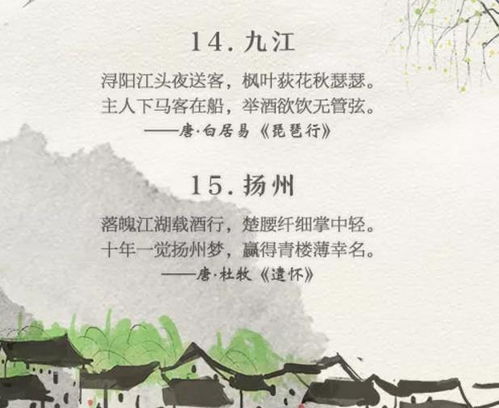 14.九江
浔阳江头夜送客，枫叶荻花秋瑟瑟。
主人下马客在船，举酒欲饮无管弦。
——唐·白居易《琵琶行》
15.扬州
落魄江湖载酒行，楚腰纤细掌中轻。
十年一觉扬州梦，赢得青楼薄幸名。
——唐·杜牧《遣怀》